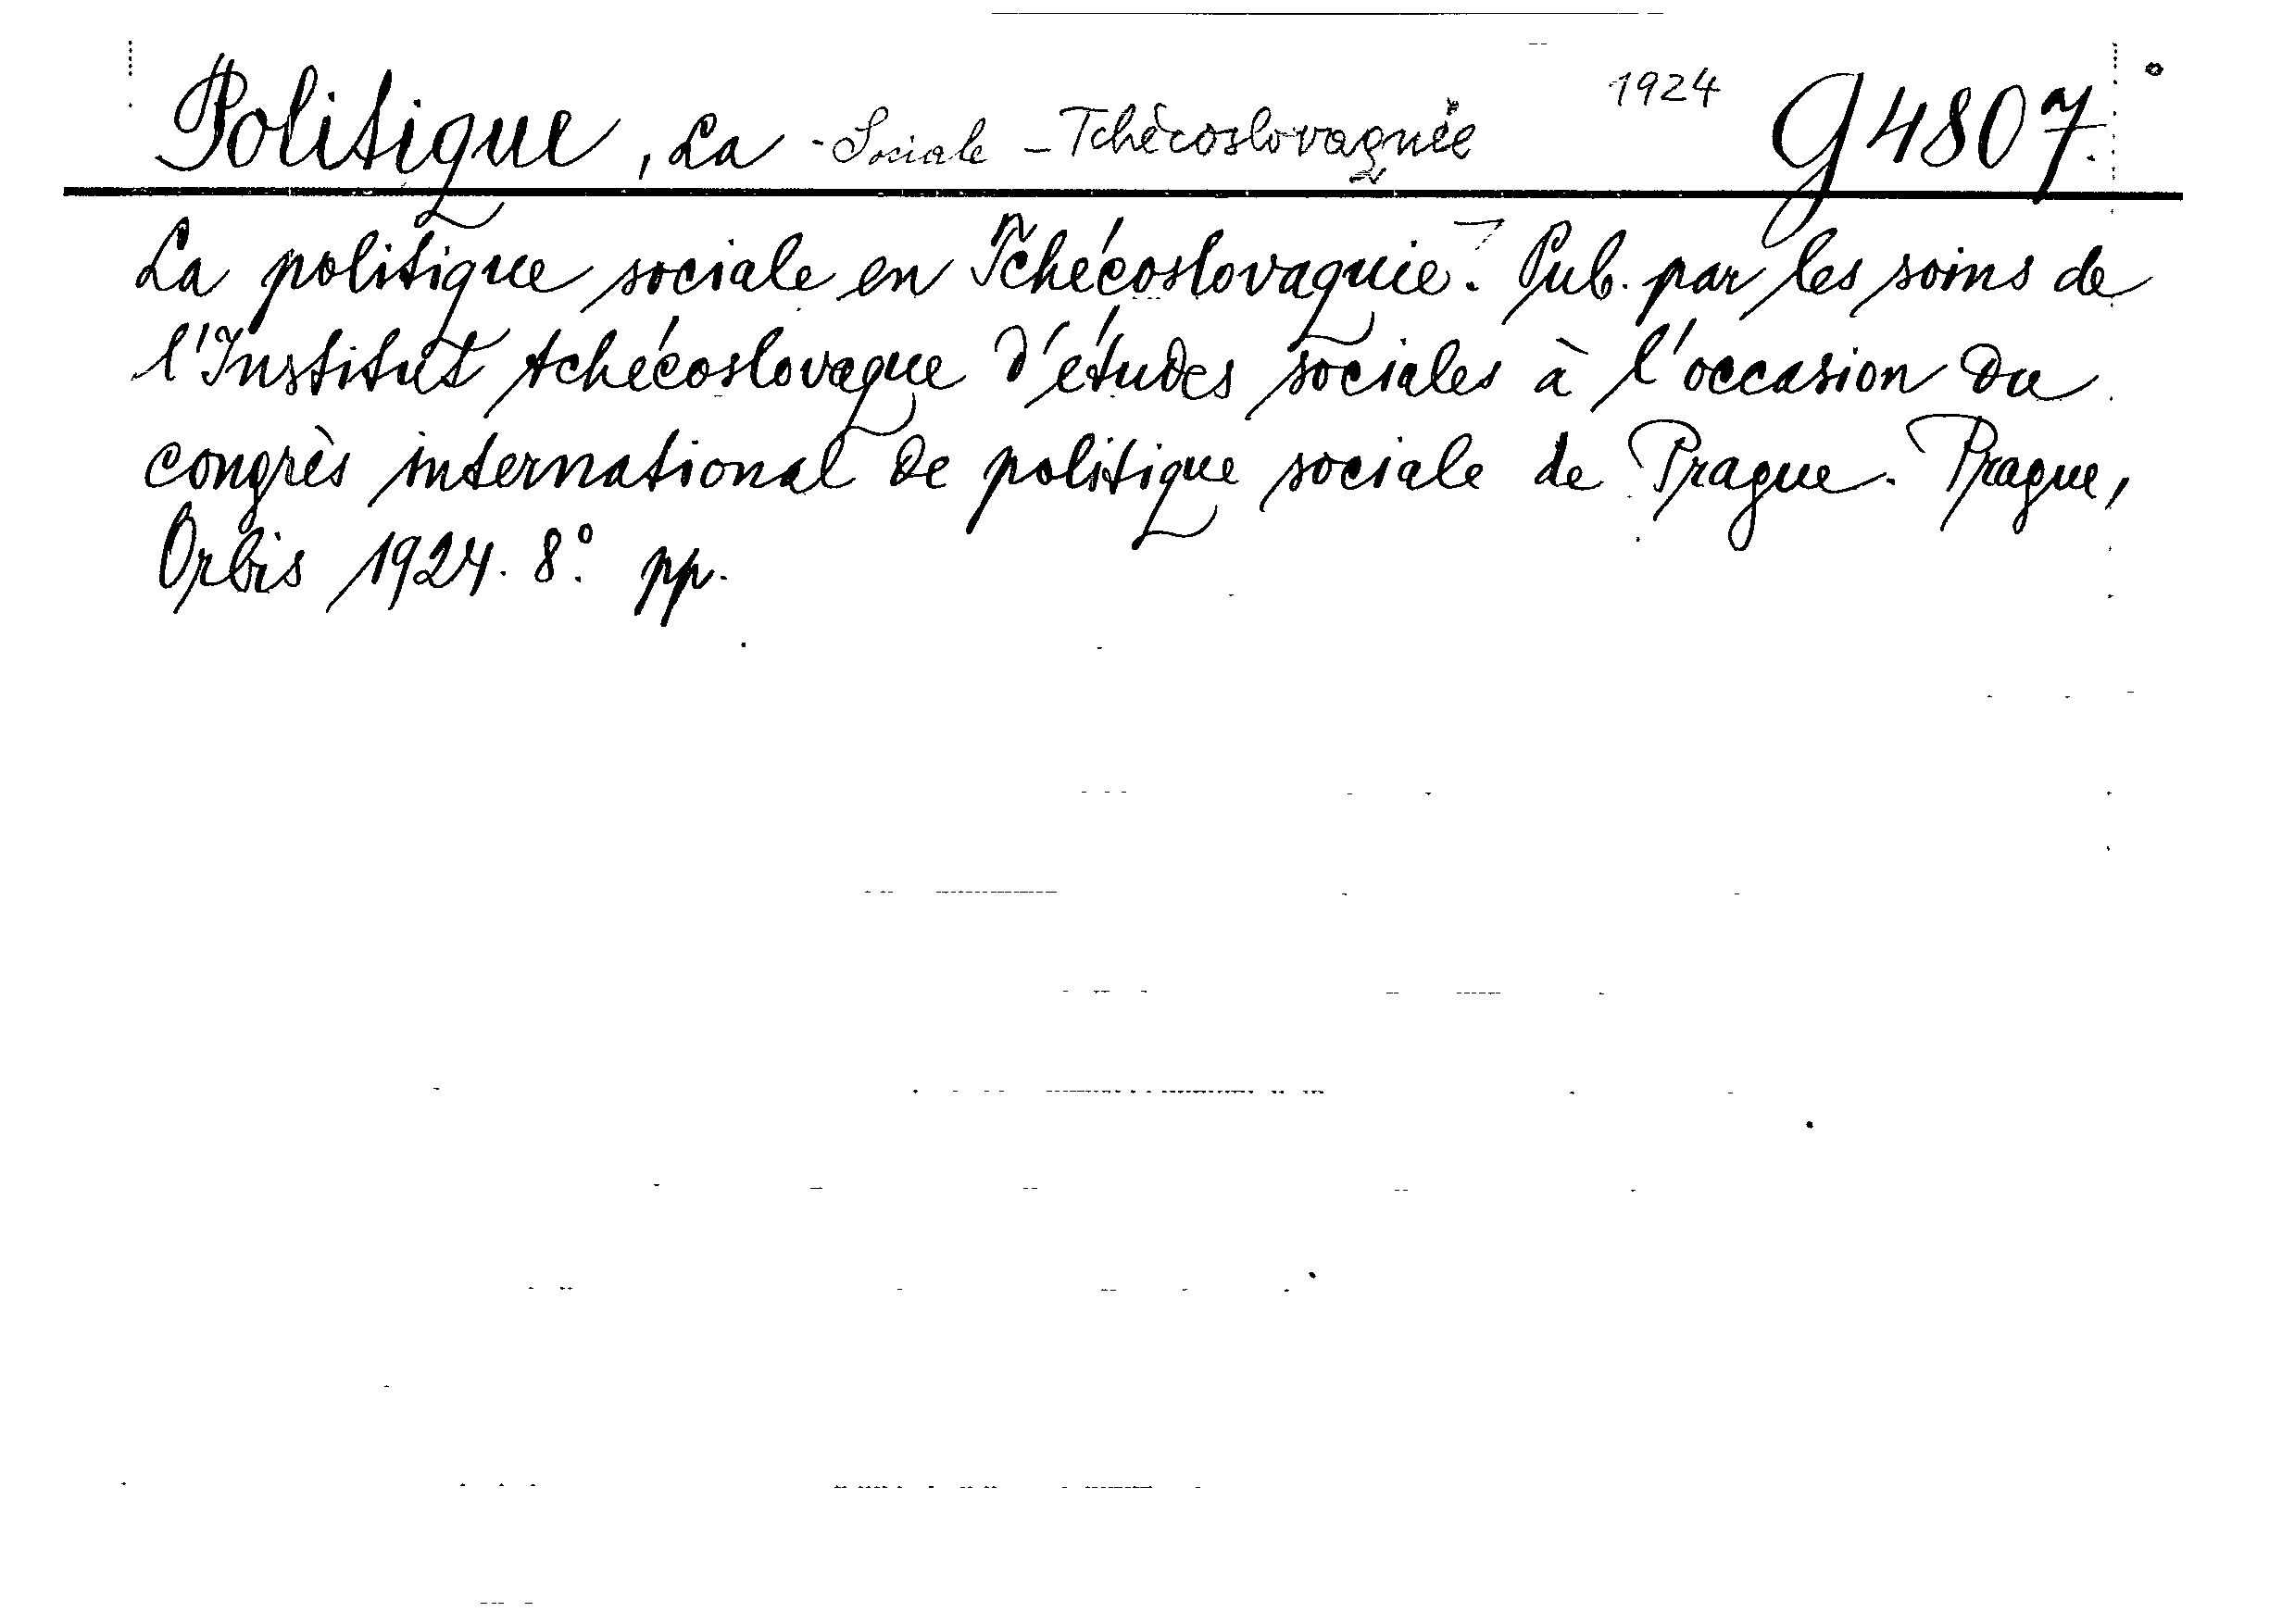 Politique, La - Sociale - Tchécoslovaquie 1924 G4807
La politique sociale en Tchécoslovaquie. Pub. par les soins de
l'Institut tchécoslovaque d'études sociales à l'occasion du
congrès international de politique sociale de Prague. Prague,
Orbis 1924. 8.° pp.